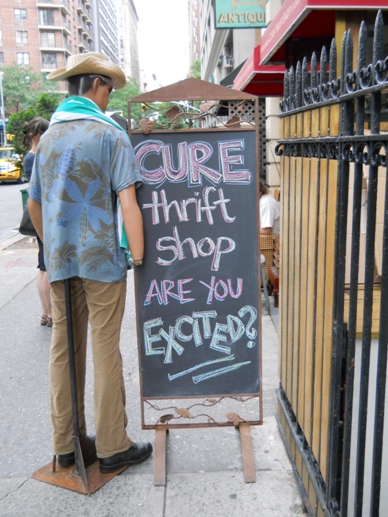 ANTIQU
CURE
thrift
shop
ARE YOU
EXCITED?